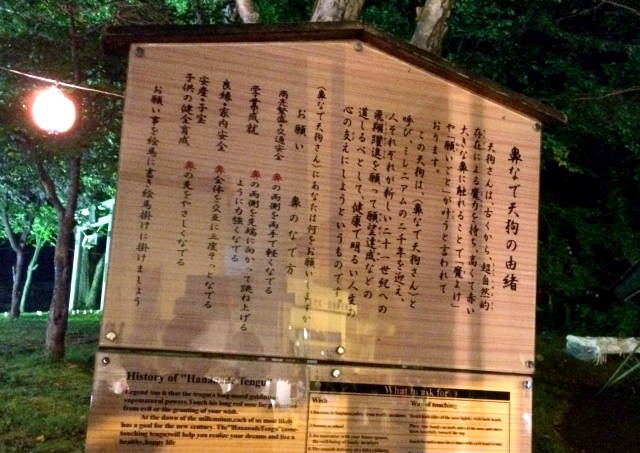 鼻なで天狗の由緒
天狗さんは、古くから、超自然的
存在による魔力を持ち、高くて赤い
大きな鼻に触れることで「魔よけ」
や「願いごとが叶うと言われて
おります。
この天狗は、(鼻なで天狗さん)と
呼び、ミレニアムの二千年を迎え、
人それぞれが新しい二十一世紀への
飛翔躍進を願って願望達成などの
道しるべとして、健康で明るい人生の
心の支えにしようというものです。
(鼻なで天狗さん)にあなたは何をお願いしますか
お願い 鼻のなで方
商売繁盛・交通安全 鼻の両側を両手で軽くなでる
学業成就 鼻の両側を先端に向かって跳ね上げる
ように力強くなでる
良縁・家内安全 鼻全体を交互に三度そっとなでる
安産・子宝
子供の健全育成 鼻の先をやさしくなでる
お願い事を絵馬に書き絵馬掛けに掛けましょう
History of "Hananade Tengu"
Legend has it that the
supernatural powers. Touch his long red nose for
from evil or the granting of your wish.
At the dawn of the millennium, each of us most likely
has a goal for the new century. The "HananadeTengu"(nose
touching tengu)will help you realize your dreams and live a
healthy, happy life
What to ask for
Wish
Way of touching